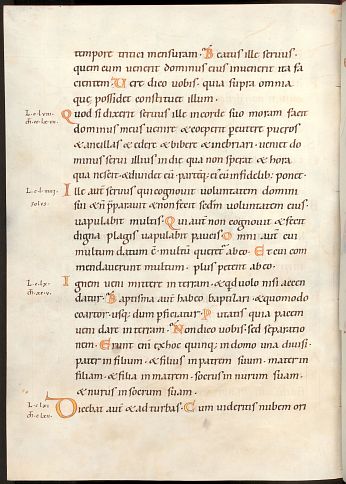 tempore tritici mensuram. Beatus ille seruus.
quem cum uenerit dominus eius inuenerit ita fa
cientem. Uere dico uobis. quia supra omnia
quę possidet constituet illum.
Quod si dixerit seruus ille in corde suo moram facit
dominus meus uenire. & coeperit percutere pueros
& ancillas & edere & bibere & inebriari. ueniet do
minus serui illius in die qua non sperat & hora
qua nescit. & diuidet eū. partēq; eī cū infidelib; ponet.
Ille autē seruus qui cognouit uoluntatem domini
sui & n̄ pręparauit & non fecit sedm̄ uoluntatem eius.
uapulabit multis. Qui autē non cognouit & fecit
digna plagis uapulabit paucis. Omni autē cui
multum datum ē. multū queret᷑ ab eo. Et cui com
mendauerunt multum. plus petent ab eo.
Ignem ueni mittere in terram. & qd uolo nisi accen
datur. Baptisma autē habeo baptizari. & quomodo
coartor. usq; dum pficiatur. Putatis quia pacem
ueni dare in terram. Non dico uobis. sed separatio
nem. Erunt enī ex hoc quinq; in domo una diuisi.
pater in filium. & filius in patrem suum. mater in
filiam. & filia in matrem. socrus in nurum suam.
& nurus in socrum suam.
Dicebat autē & ad turbas. Cum uideritis nubem ori